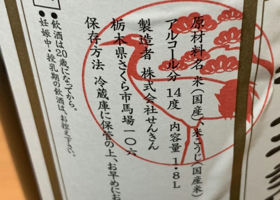 原材料名 米(国産)、米こうじ(国産米)
アルコール分 14度 内容量 1.8L
製造者 株式会社せんきん
栃木県さくら市馬場一〇六
保存方法 冷蔵庫に保管の上、お早めにお
・飲酒は20歳になってから。
・妊娠中・授乳期の飲酒は、お控え下さい。